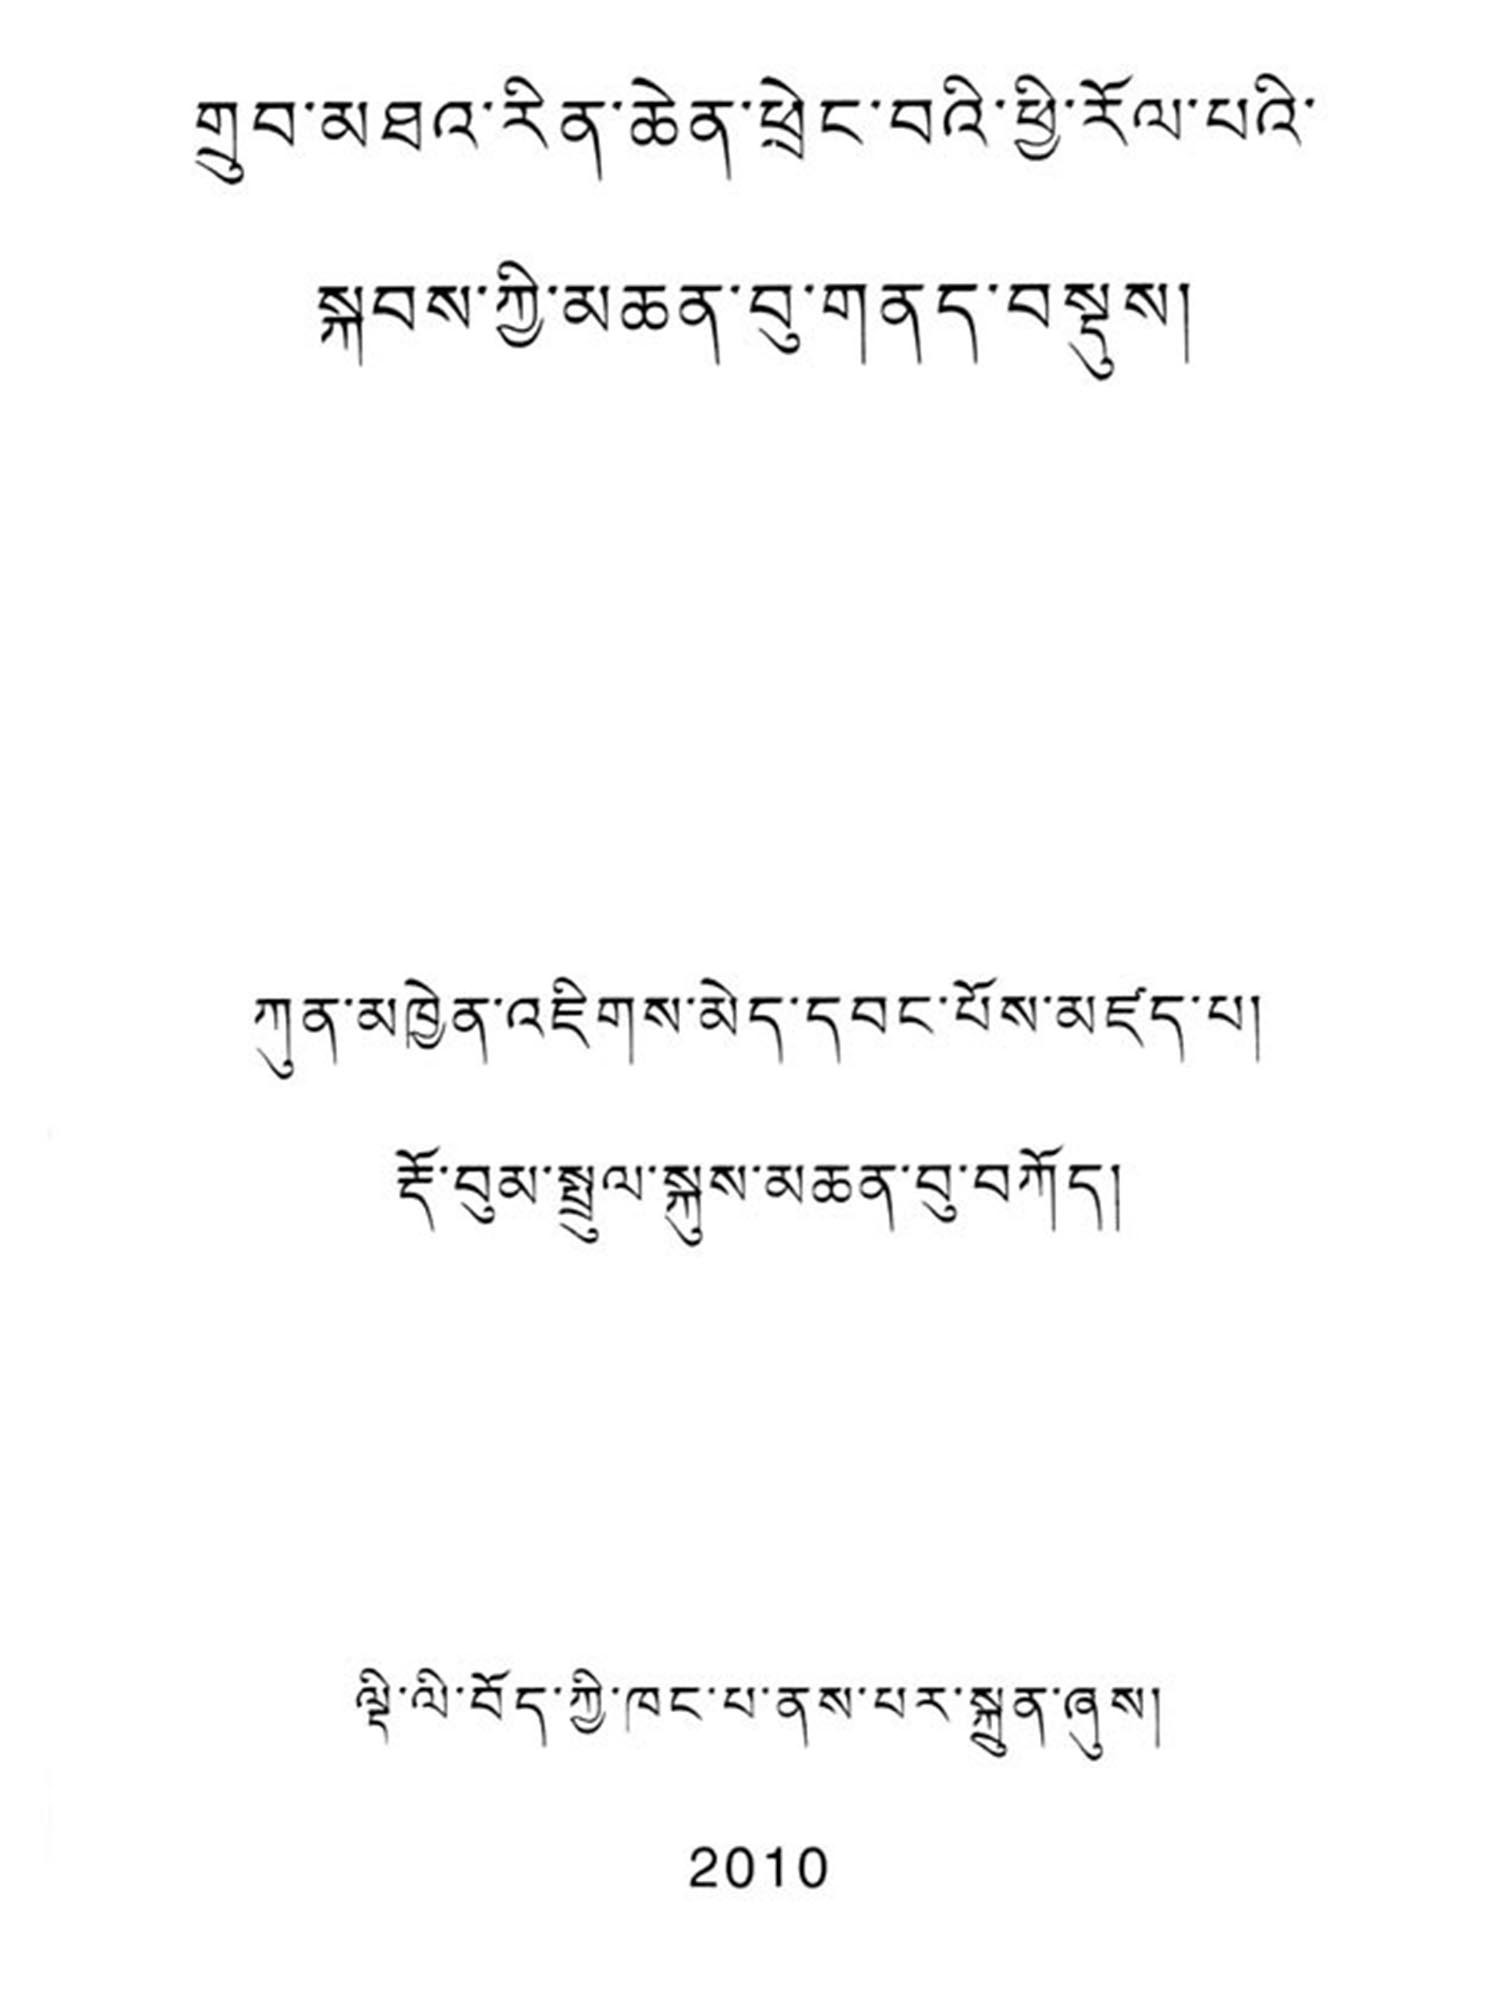 གྲུབ་མཐའ་རིན་ཆེན་ཕྲེང་བའི་ཕྱི་རོལ་པའི་
སྐབས་ཀྱི་མཆན་བུ་གནད་བསྡུས།
ཀུན་མཁྱེན་འཇིགས་མེད་དབང་པོས་མཛད་པ།
རྡོ་བུམ་སྤྲུལ་སྐུས་མཆན་བུ་བཀོད།
ལྡི་ལི་བོད་ཀྱི་ཁང་པ་ནས་པར་སྐྲུན་ཞུས།
2010